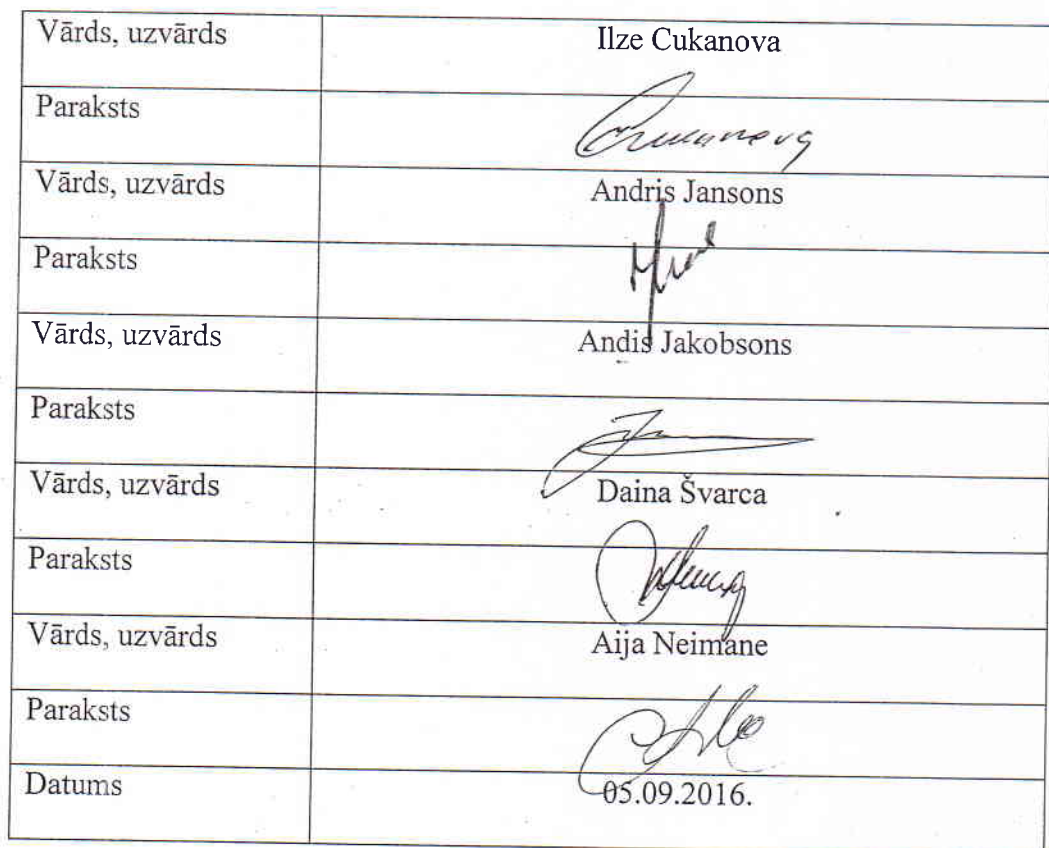 Vārds, uzvārds Ilze Cukanova
Paraksts
Vārds, uzvārds Andris Jansons
Paraksts
Vārds, uzvārds Andis Jakobsons
Paraksts
Vārds, uzvārds Daina Švarca
Paraksts
Vārds, uzvārds Aija Neimane
Paraksts
Datums 05.09.2016.